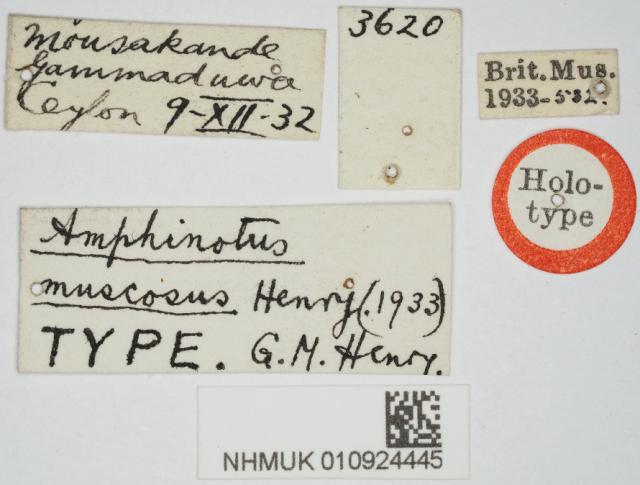 Mousakande
Gammaduwa
Ceylon 9-XII-32
3620
Brit. Mus.
1933-532.
Holo-
type
Amphinotus
muscosus Henry (1933)
TYPE. G. M. Henry.
NHMUK 010924445